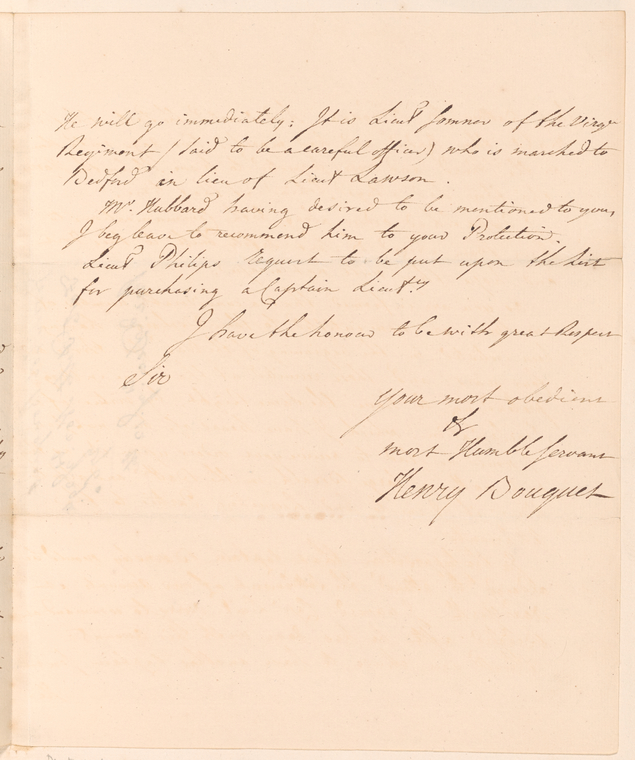 He will go immediately: It is Lieut Somner of the Virga
Regiment (said to be a careful officer) who is marched to
Bedford in lieu of Lieut Lawson.
Mr. Hubbard having desired to be mentioned to you,
I beg leave to recommend him to your Protection.
Lieut Philips Request to be put upon the List
for purchasing a Captain Lieuty
I have the honour to be with great Respect
Sir
Your most obedient
&
most Humble Servant
Henry Bouquet